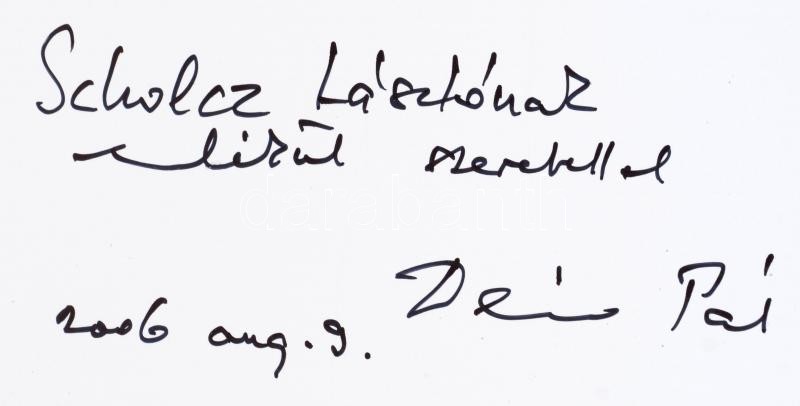 Scholcz Lászlónak
emlékül szeretettel
darabanth
2006 aug. 9. Deim Pál